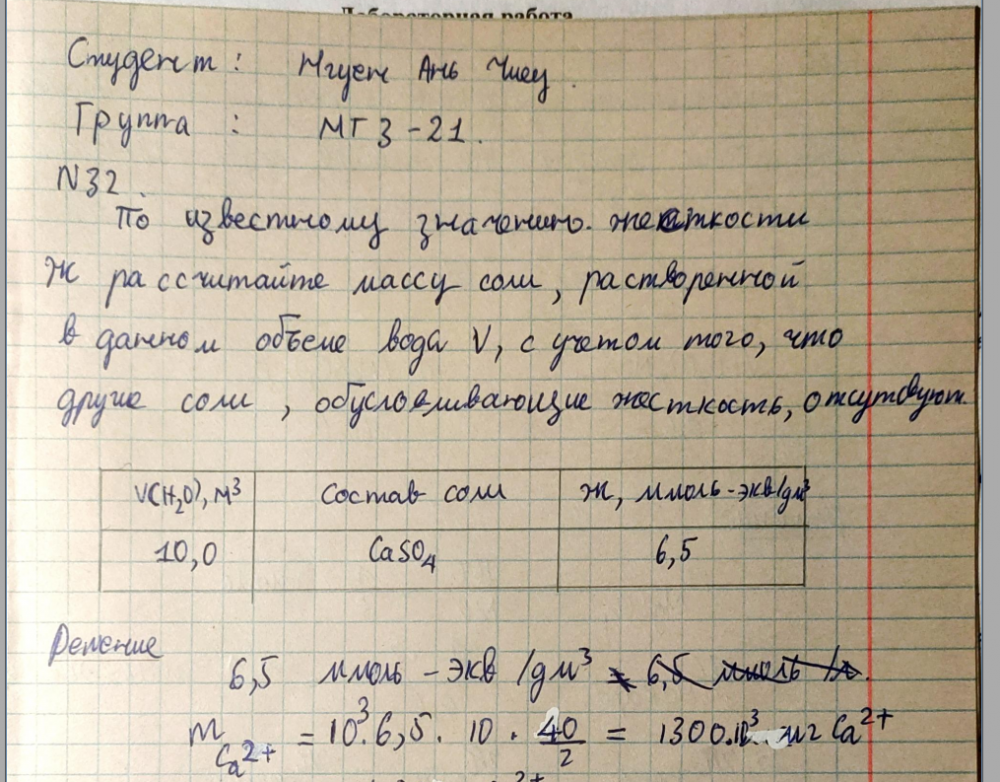 Лабораторная работа
Студент : Нгуен Ань Чиеу.
Группа : МТ3-21.
N32.
По известному значению. жесткости
Ж рассчитайте массу соли, растворенной
в данном объеме вода V, с учетом того, что
другие соли, обуславливающие жесткость, отсутвуют.
V(H₂O), м³ Состав соли Ж, ммоль-экв/дм³
10,0 CaSO₄ 6,5
Решение
6,5 ммоль - экв /дм³
m Ca²⁺ = 10³.6,5. 10 . 40/2 = 1300.10³ мг Ca²⁺